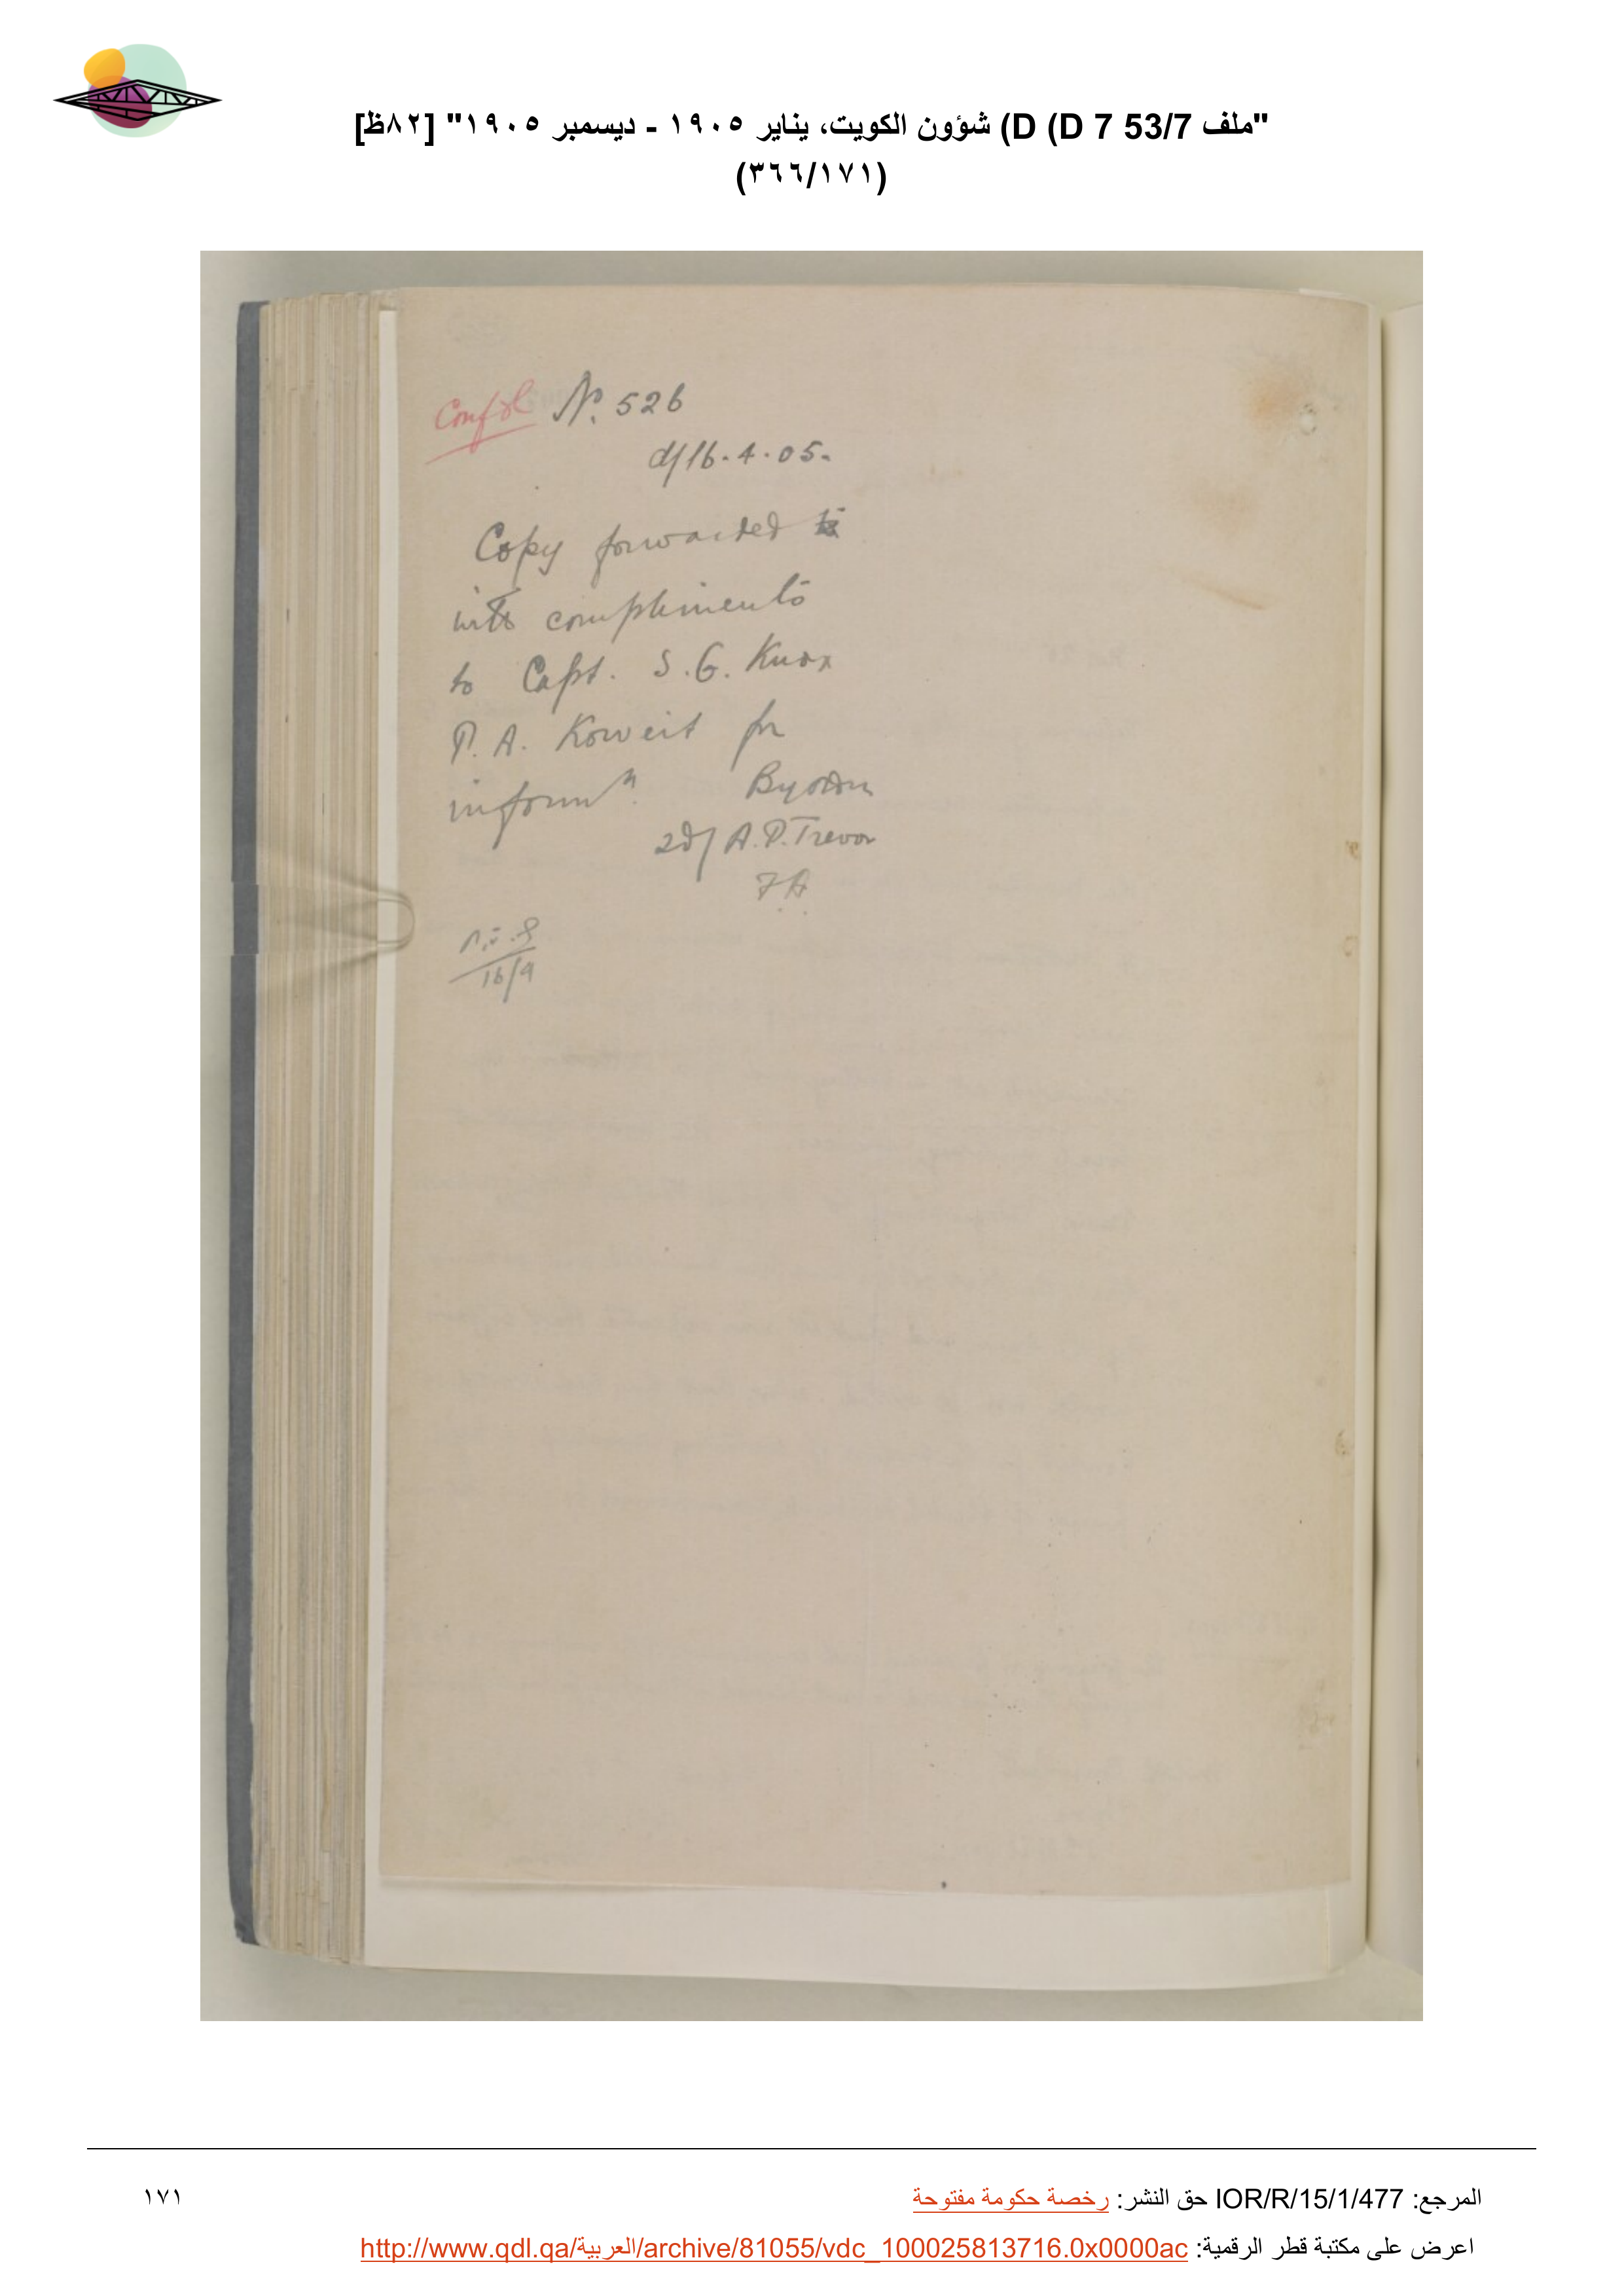 "ملف 53/7 D 7) D) شؤون الكويت، يناير ١٩٠٥ - ديسمبر ١٩٠٥" [٨٢ظ]
(٣٦٦/١٧١)
Confdl No. 526
d/16.4.05.
Copy forwarded
with compliments
to Capt. S.G. Knox
P.A. Koweit for
informn. By order
A.P. Trevor
F.A.
16/4
المرجع: IOR/R/15/1/477 حق النشر: رخصة حكومة مفتوحة
١٧١
اعرض على مكتبة قطر الرقمية: http://www.qdl.qa/العربية/archive/81055/vdc_100025813716.0x0000ac